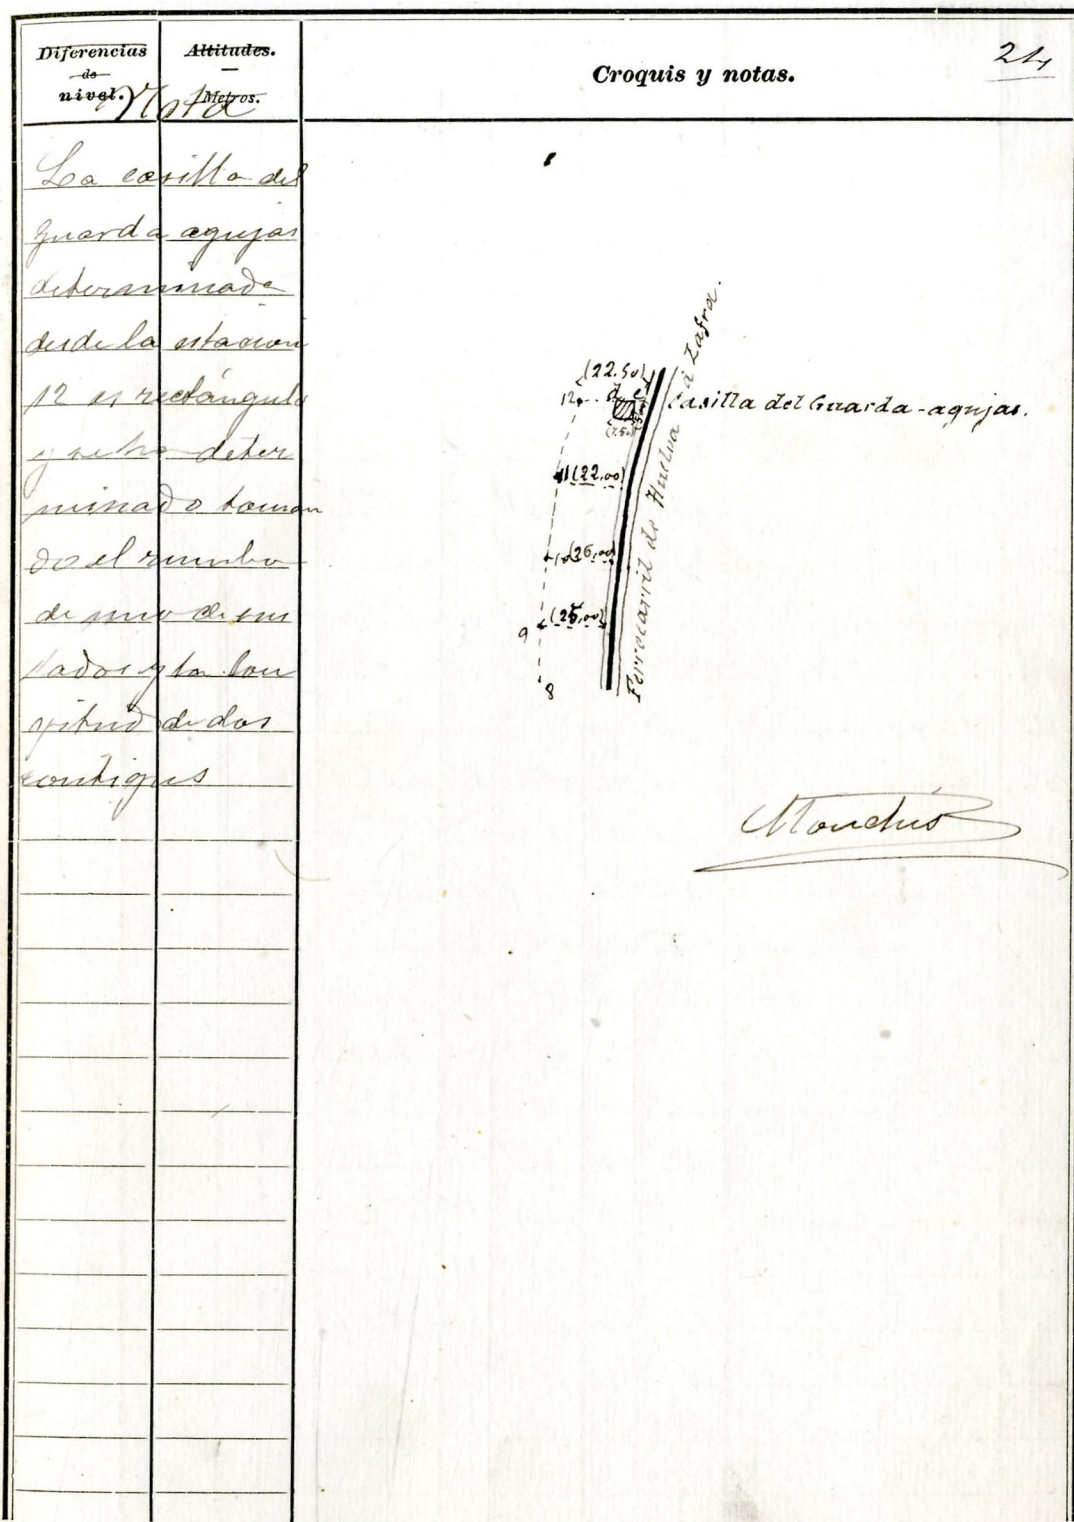 Diferencias
de
nivel.
Altitudes.
Metros.
Croquis y notas.
24
Nota
La casilla del
guarda agujas
determinada
desde la estacion
12 es rectángulo
y se ha deter
minado toman
do el rumbo
de uno de sus
lados y la lon
gitud de dos
contiguos
(22.50)
12
d
e
(7.50)
Casilla del Guarda-agujas.
11 (22,00)
10 (26,00)
(25,00)
9
8
Ferrocarril de Huelva á Zafra.